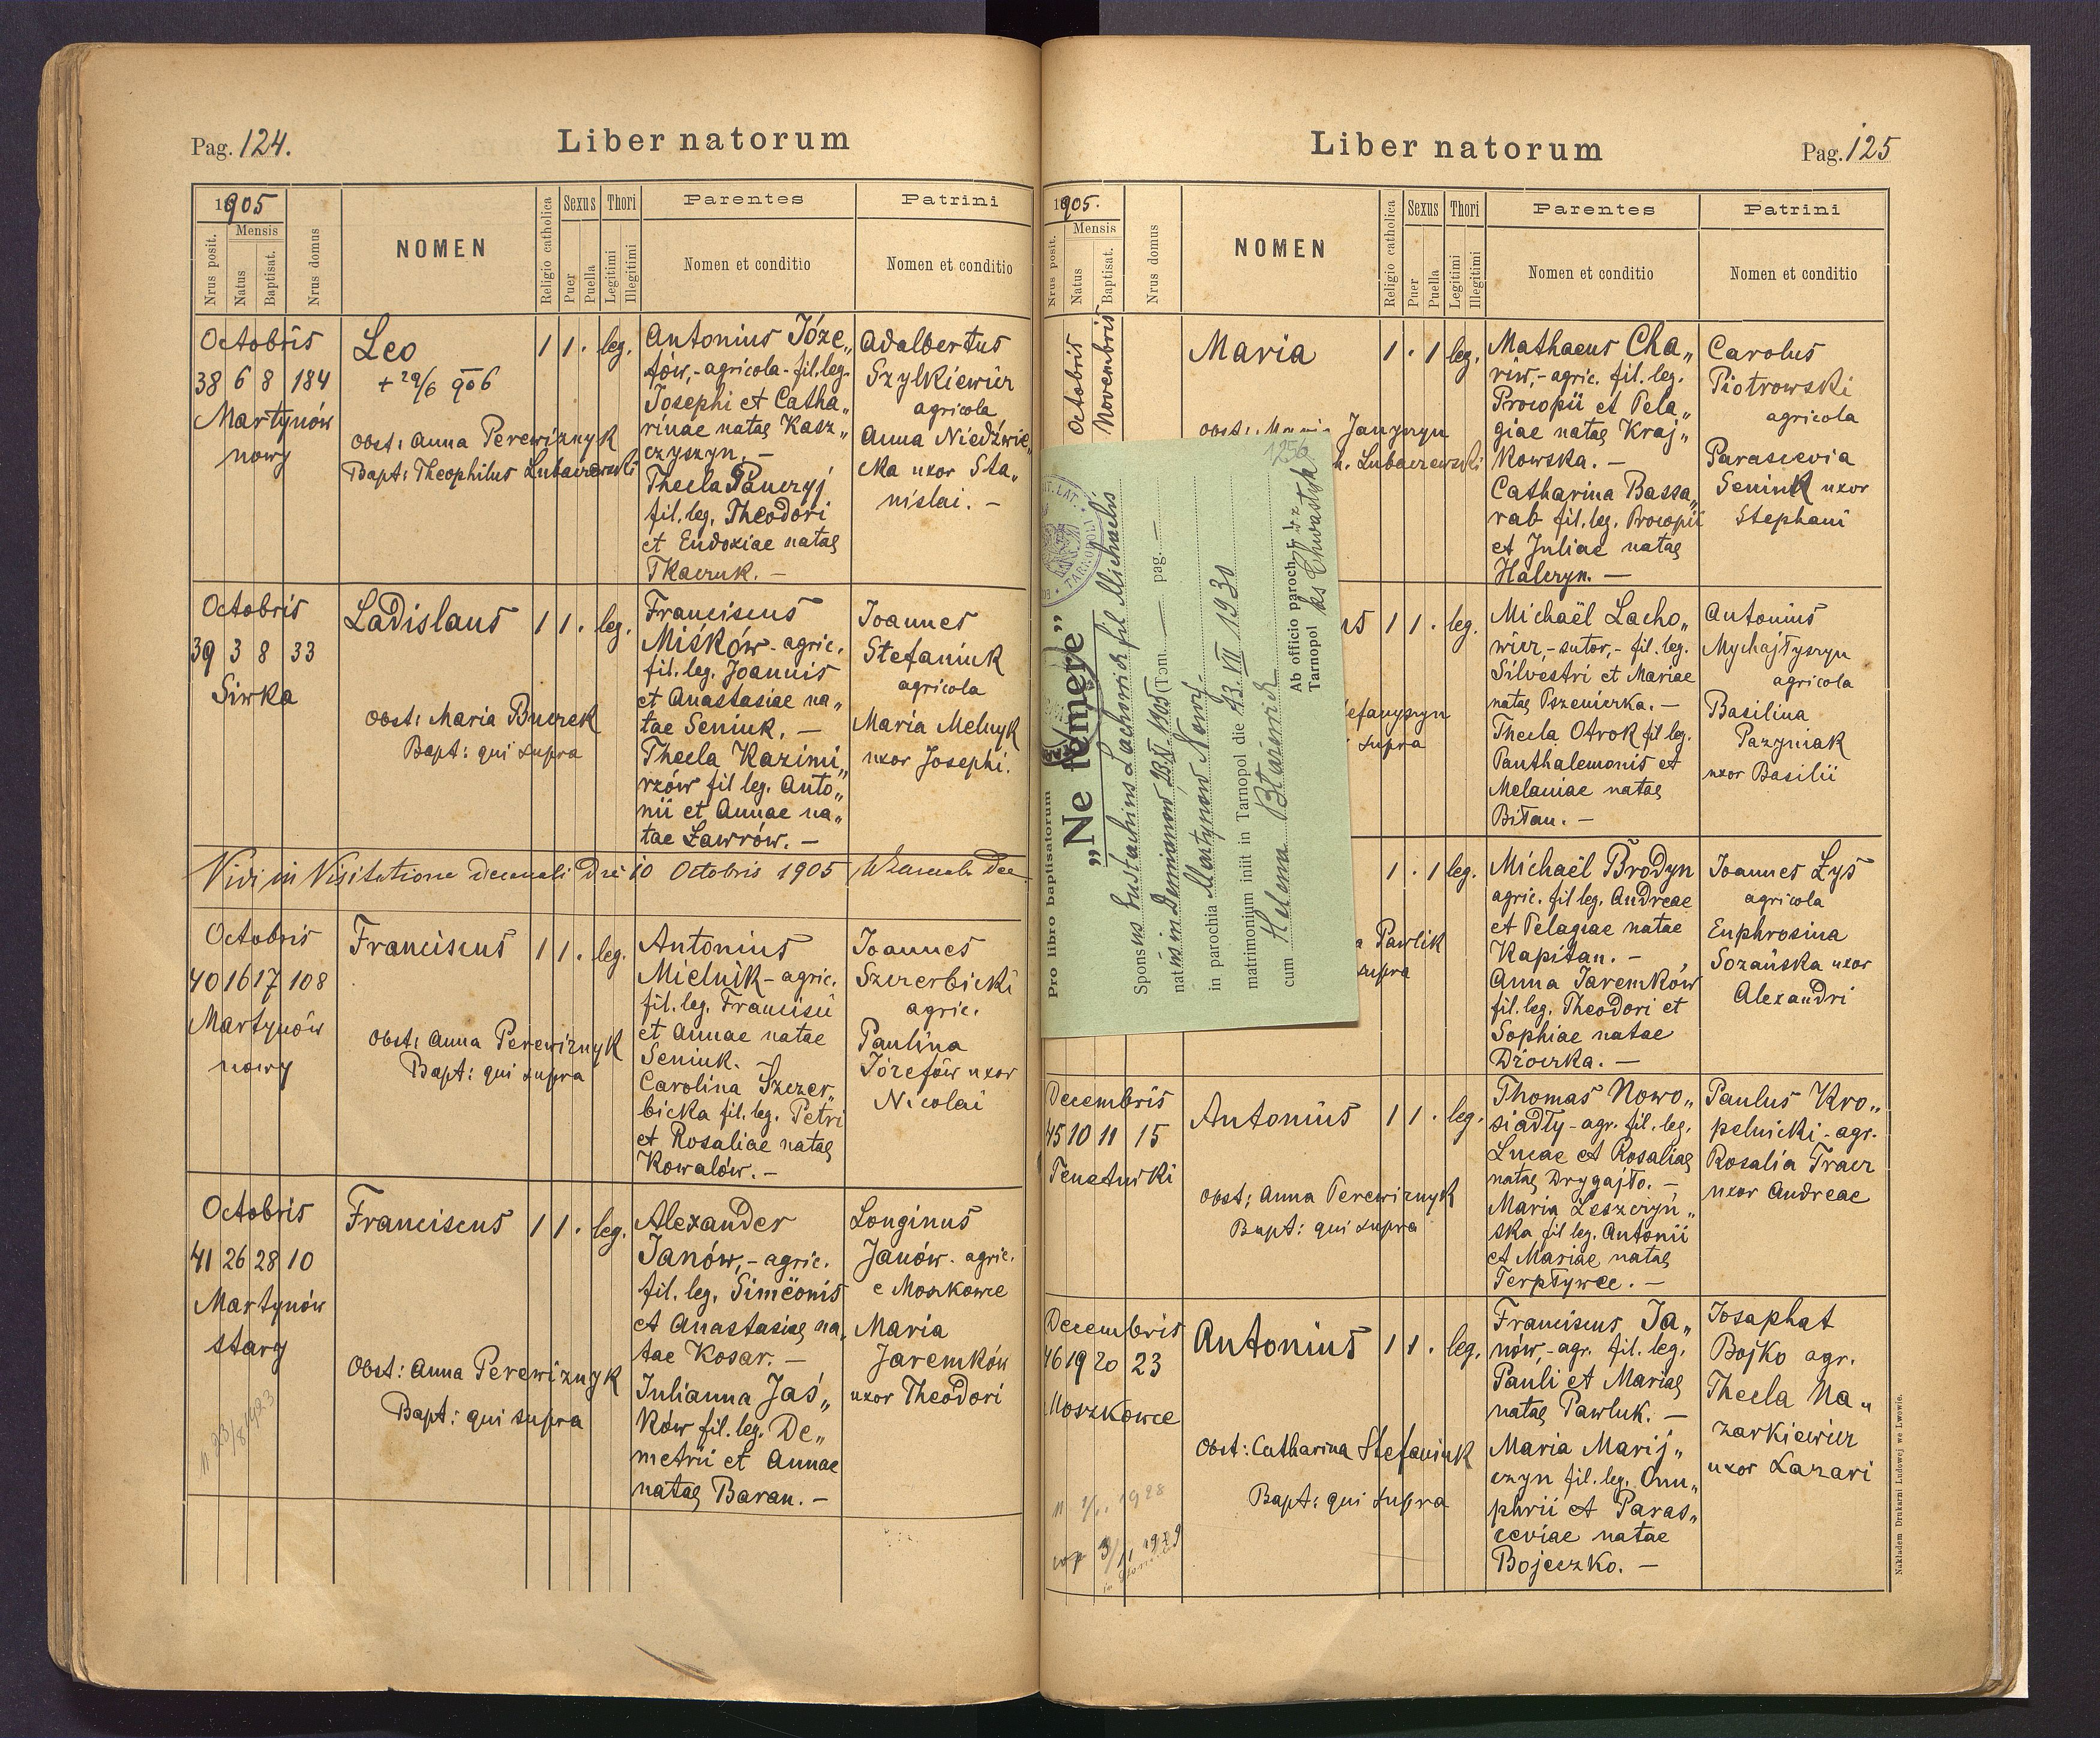 Pag. 124.
Liber natorum
1905
Mensis
Nrus posit.
Natus
Baptisat.
Nrus domus
NOMEN
Religio catholica
Sexus
Puer
Puella
Thori
Legitimi
Illegitimi
Parentes
Nomen et conditio
Patrini
Nomen et conditio
Octobris
38 6 8 184
Martynów
nowy
Leo
+ 29/6 906
Obst: Anna Perewiznyk
Bapt: Theophilus Lubaczewski
1 1 . leg.
Antonius Józe„
fów,- agricola - fil. leg.
Josephi et Catha„
rinae natae Kasz„
czyszyn. -
Thecla Panczyj
fil. leg. Theodori
et Eudoxiae natae
Tkaczuk. -
Adalbertus
Szylkiewicz
agricola
Anna Niedźwie„
cka uxor Sta„
nislai. -
Octobris
39 3 8 33
Siwka
Ladislaus
Obst: Maria Burek
Bapt: qui supra
1 1 . leg.
Franciscus
Miśków - agric.
fil. leg. Joannis
et Anastasiae na„
tae Seniuk. -
Thecla Kazimi„
rzów fil leg. Anto„
nii et Annae na„
tae Ławrów. -
Joannes
Stefaniuk
agricola
Maria Melnyk
uxor Josephi.
Vidi in Visitatione decanali die 10 Octobris 1905
Octobris
40 16 17 108
Martynów
nowy
Franciscus
Obst: Anna Perewiznyk
Bapt: qui supra
1 1 . leg.
Antonius
Mielnik - agric.
fil. leg. Francisci
et Annae natae
Seniuk. -
Carolina Szczer„
bicka fil. leg. Petri
et Rosaliae natae
Kowalów. -
Joannes
Szczerbicki
agric.
Paulina
Józefów uxor
Nicolai
Octobris
41 26 28 10
Martynów
stary
23/8 1923
Franciscus
Obst: Anna Perewiznyk
Bapt: qui supra
1 1 . leg.
Alexander
Janów,- agric.
fil. leg. Simeonis
et Anastasiae na„
tae Kosar. -
Julianna Jaś„
ków fil. leg. De„
metrii et Annae
natae Baran. -
Longinus
Janów - agric.
e Moszkowce
Maria
Jaremków
uxor Theodori
Liber natorum
Pag. 125
1905.
Mensis
Nrus posit.
Natus
Baptisat.
Nrus domus
NOMEN
Religio catholica
Sexus
Puer
Puella
Thori
Legitimi
Illegitimi
Parentes
Nomen et conditio
Patrini
Nomen et conditio
Octobris
Novembris
Maria
Obst: Maria Janyszyn
Lubaczewski
1 . 1 leg.
Mathaeus Cha„
riw,- agric. fil. leg.
Procopii et Pela„
giae natae Kraj„
kowska. -
Catharina Bassa„
rab fil. leg. Procopii
et Juliae natae
Halczyn. -
Carolus
Piotrowski
agricola
Parascevia
Seniuk uxor
Stephani
Pro libro baptisatorum
„Ne temere”
Sponsus Eustachius Lachowicz fil Michaelis
natus in Dominów 13.XI.1905 (Tom. — pag. —
in parochia Martynów Nowy.
matrimonium iniit in Tarnopol die 23.VII 1930
cum Helena Błażewicz
Ab officio paroch.
Tarnopol
ks Chwastyk
1256
us 1 1 . leg.
efanyszyn
supra
Michaël Lacho„
wicz,- sutor,- fil. leg.
Silvestri et Mariae
natae Pszenicka. -
Thecla Otrok fil leg.
Panthalemonis et
Melaniae natae
Bitan. -
Antonius
Mychajłyszyn
agricola
Basilina
Pazyniak
uxor Basilii
1 . 1 leg.
a Pawlik
supra
Michaël Brodyn
agric. fil leg. Andreae
et Pelagiae natae
Kapitan. -
Anna Jaremków
fil. leg. Theodori et
Sophiae natae
Dżoczka. -
Joannes Łys
agricola
Euphrosina
Sozańska uxor
Alexandri
Decembris
45 10 11 15
Tenetniki
Antonius
Obst: Anna Perewiznyk
Bapt: qui supra
1 1 . leg.
Thomas Nowo„
siadły - agr. fil. leg.
Lucae et Rosaliae
natae Drygajło. -
Maria Leszczyń„
ska fil leg. Antonii
et Mariae natae
Terpływec. -
Paulus Kro„
pelnicki - agr.
Rosalia Tracz
uxor Andreae
Decembris
46 19 20 23
Moszkowce
1928
1929
Antonius
Obst: Catharina Stefaniuk
Bapt: qui supra
1 1 . leg.
Franciscus Ja„
nów,- agr. fil. leg.
Pauli et Mariae
natae Pawluk. -
Maria Marij„
czyn fil. leg. Onu„
phrii et Paras„
ceviae natae
Bojeczko. -
Josaphat
Bojko agr.
Thecla Na„
zarkiewicz
uxor Lazari
Nakładem Drukarni Ludowej we Lwowie.